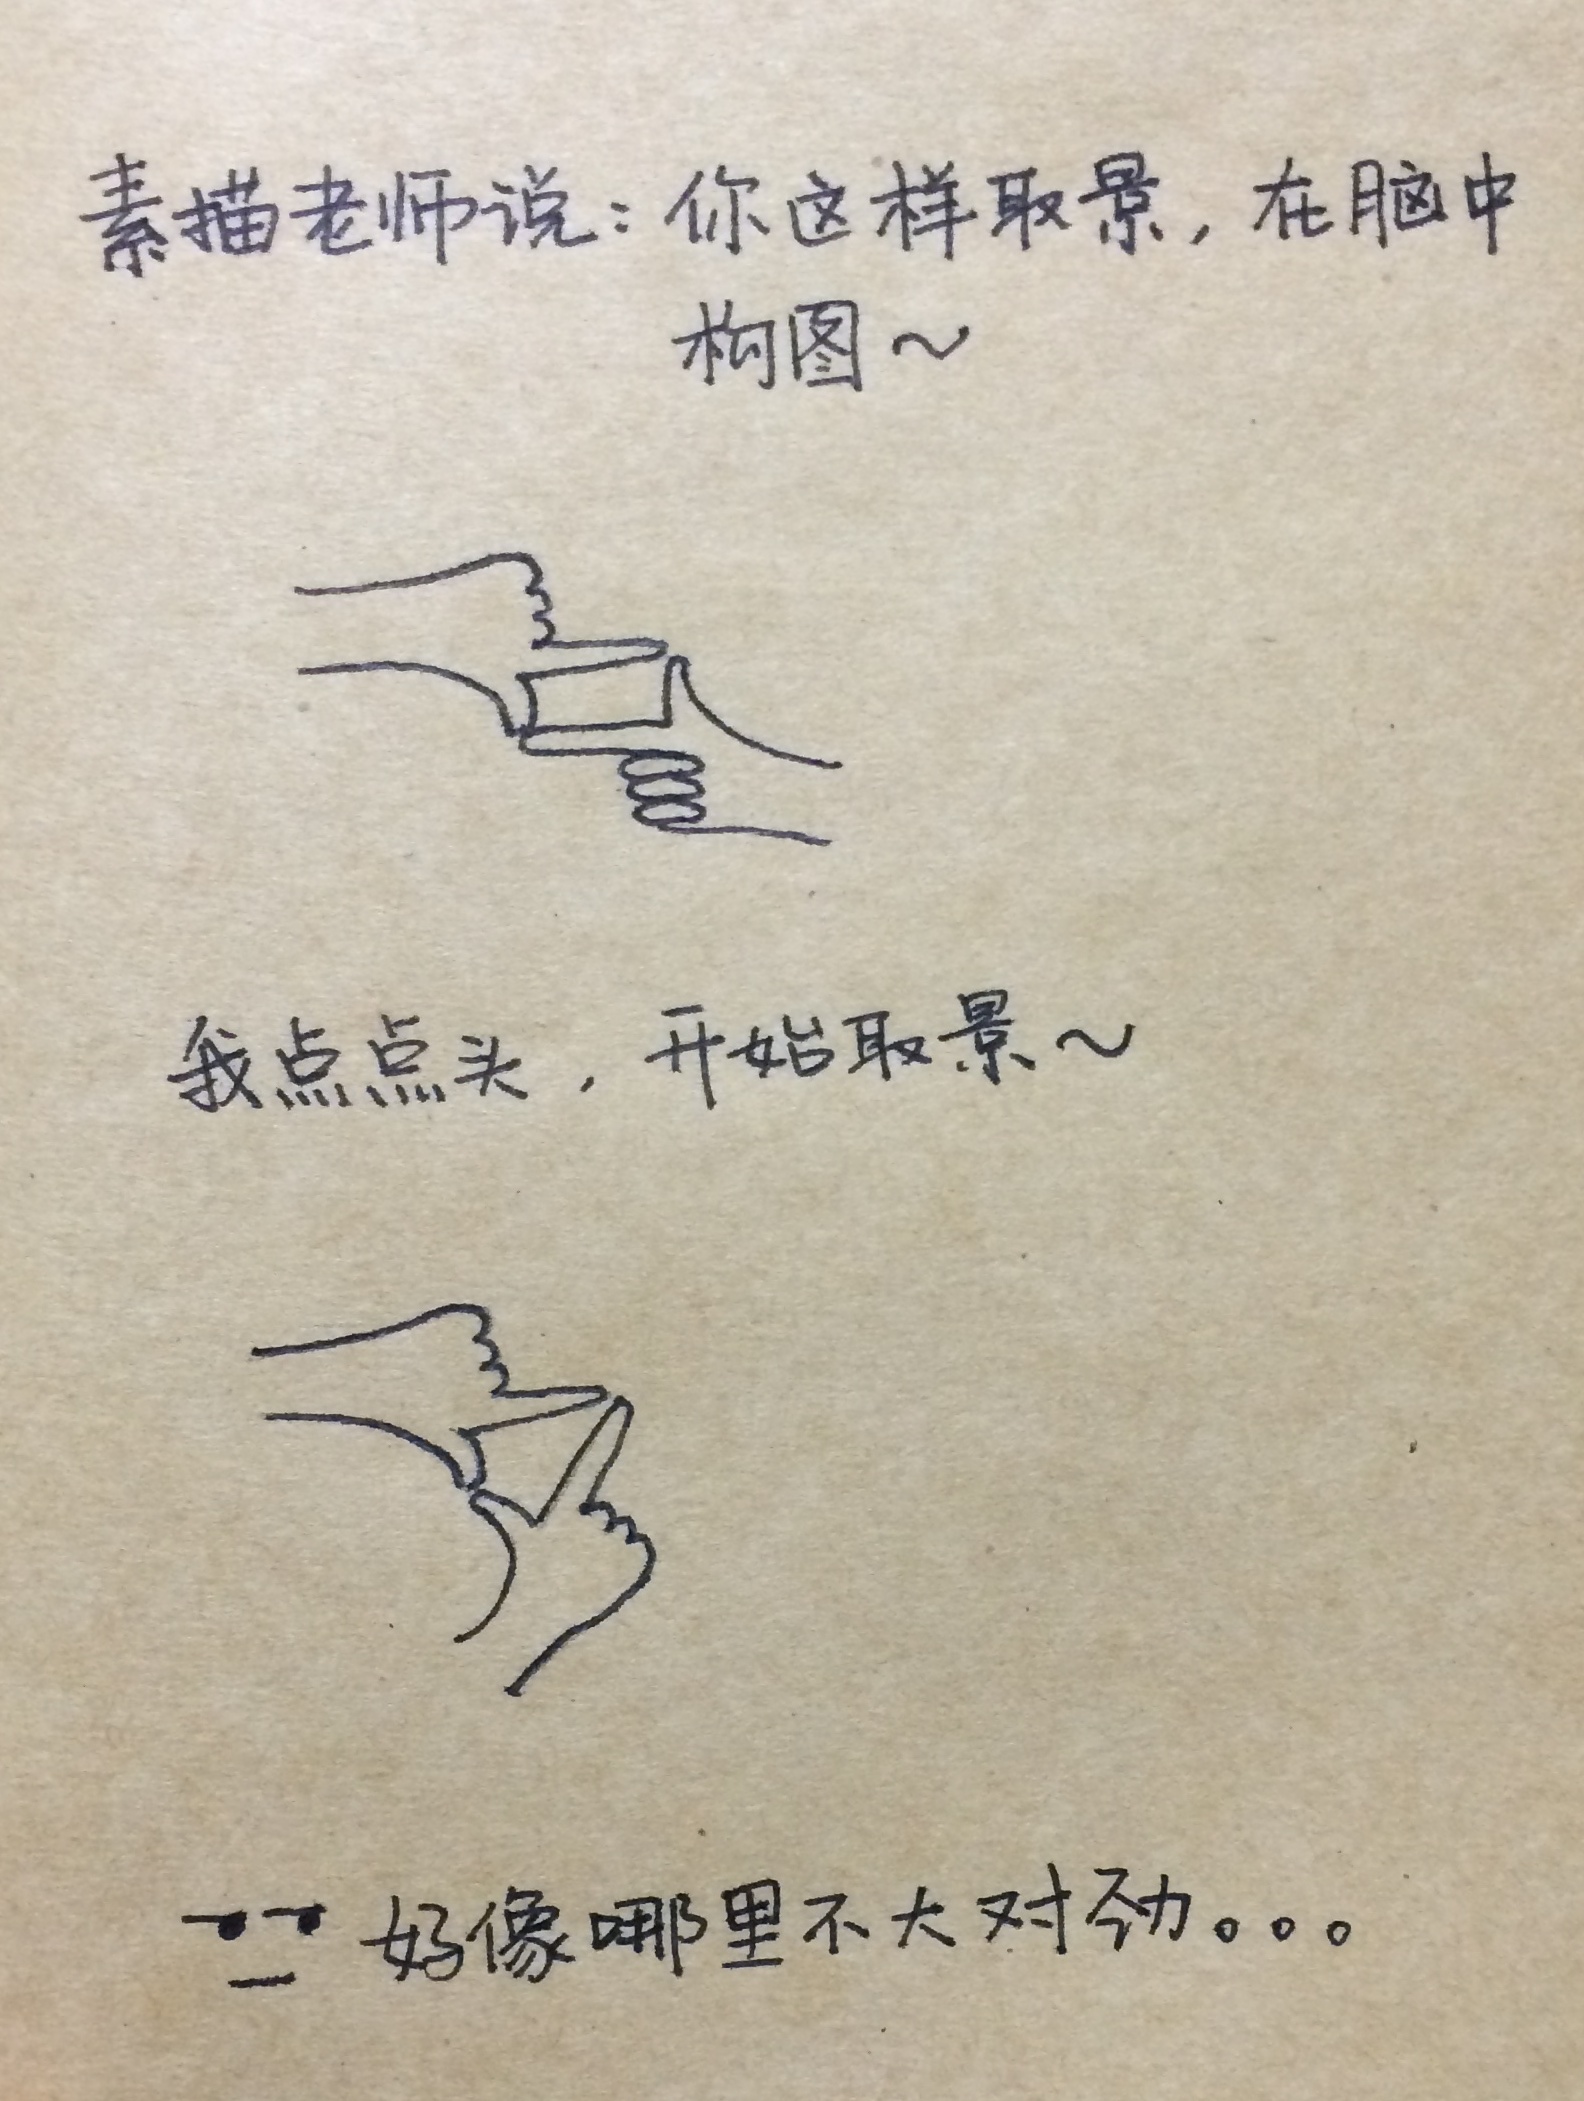 素描老师说：你这样取景，在脑中
构图～
我点点头，开始取景～
好像哪里不大对劲。。。